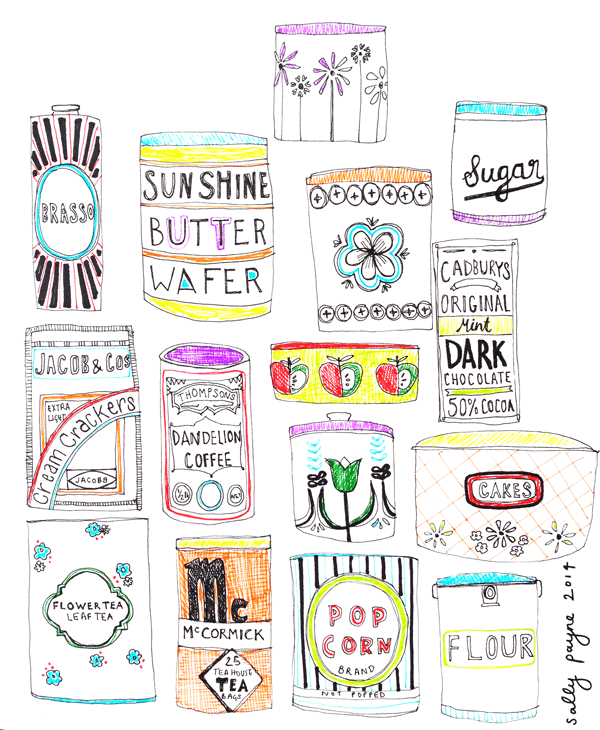 Sugar
BRASSO
SUNSHINE
BUTTER
WAFER
CADBURYS
ORIGINAL
Mint
DARK
CHOCOLATE
50% COCOA
JACOB & COS
EXTRA
LIGHT
Cream Crackers
JACOBS
THOMPSONS
DANDELION
COFFEE
CAKES
FLOWER TEA
LEAF TEA
Mc
McCORMICK
25
TEA HOUSE
TEA
BAGS
POP
CORN
BRAND
NOT POPPED
FLOUR
sally payne 2014